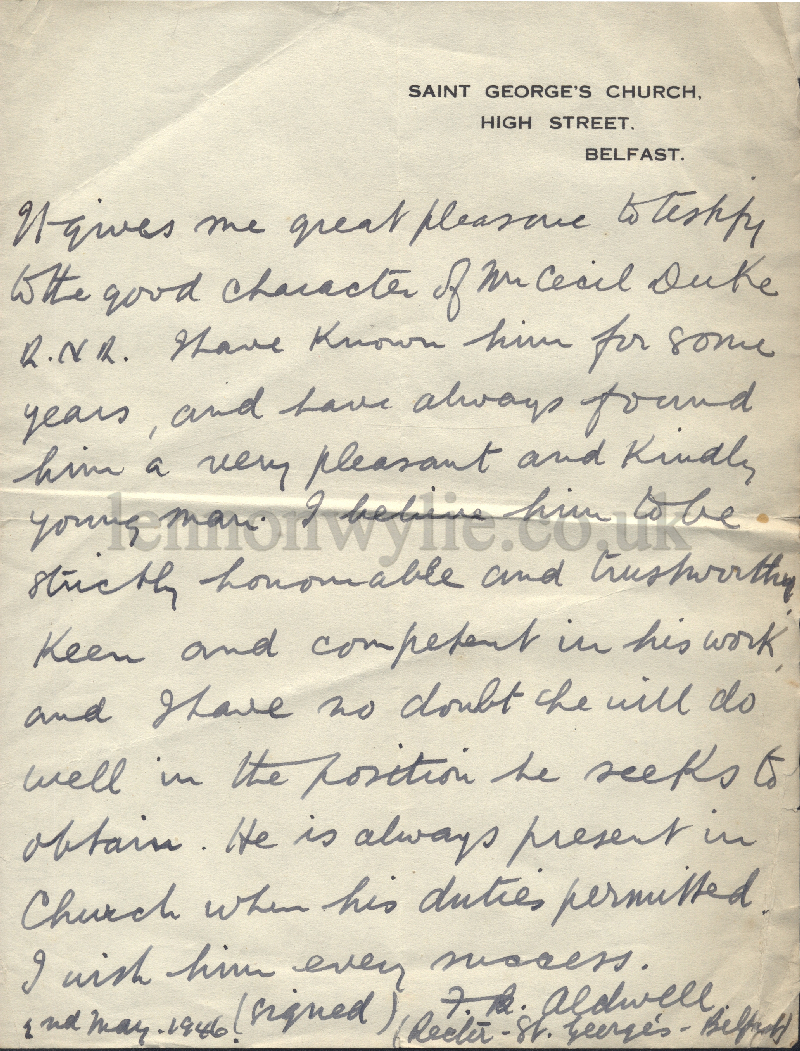 SAINT GEORGE'S CHURCH,
HIGH STREET.
BELFAST.
It gives me great pleasure to testify
to the good character of Mr Cecil Duke
R.N.R. I have known him for some
years, and have always found
him a very pleasant and kindly
young man. I believe him to be
lennonwylie.co.uk
strictly honourable and trustworthy,
keen and competent in his work,
and I have no doubt he will do
well in the position he seeks to
obtain. He is always present in
Church when his duties permitted.
I wish him every success.
(signed) Aldwell.
2nd May. 1946. (Rector - St. George's - Belfast)